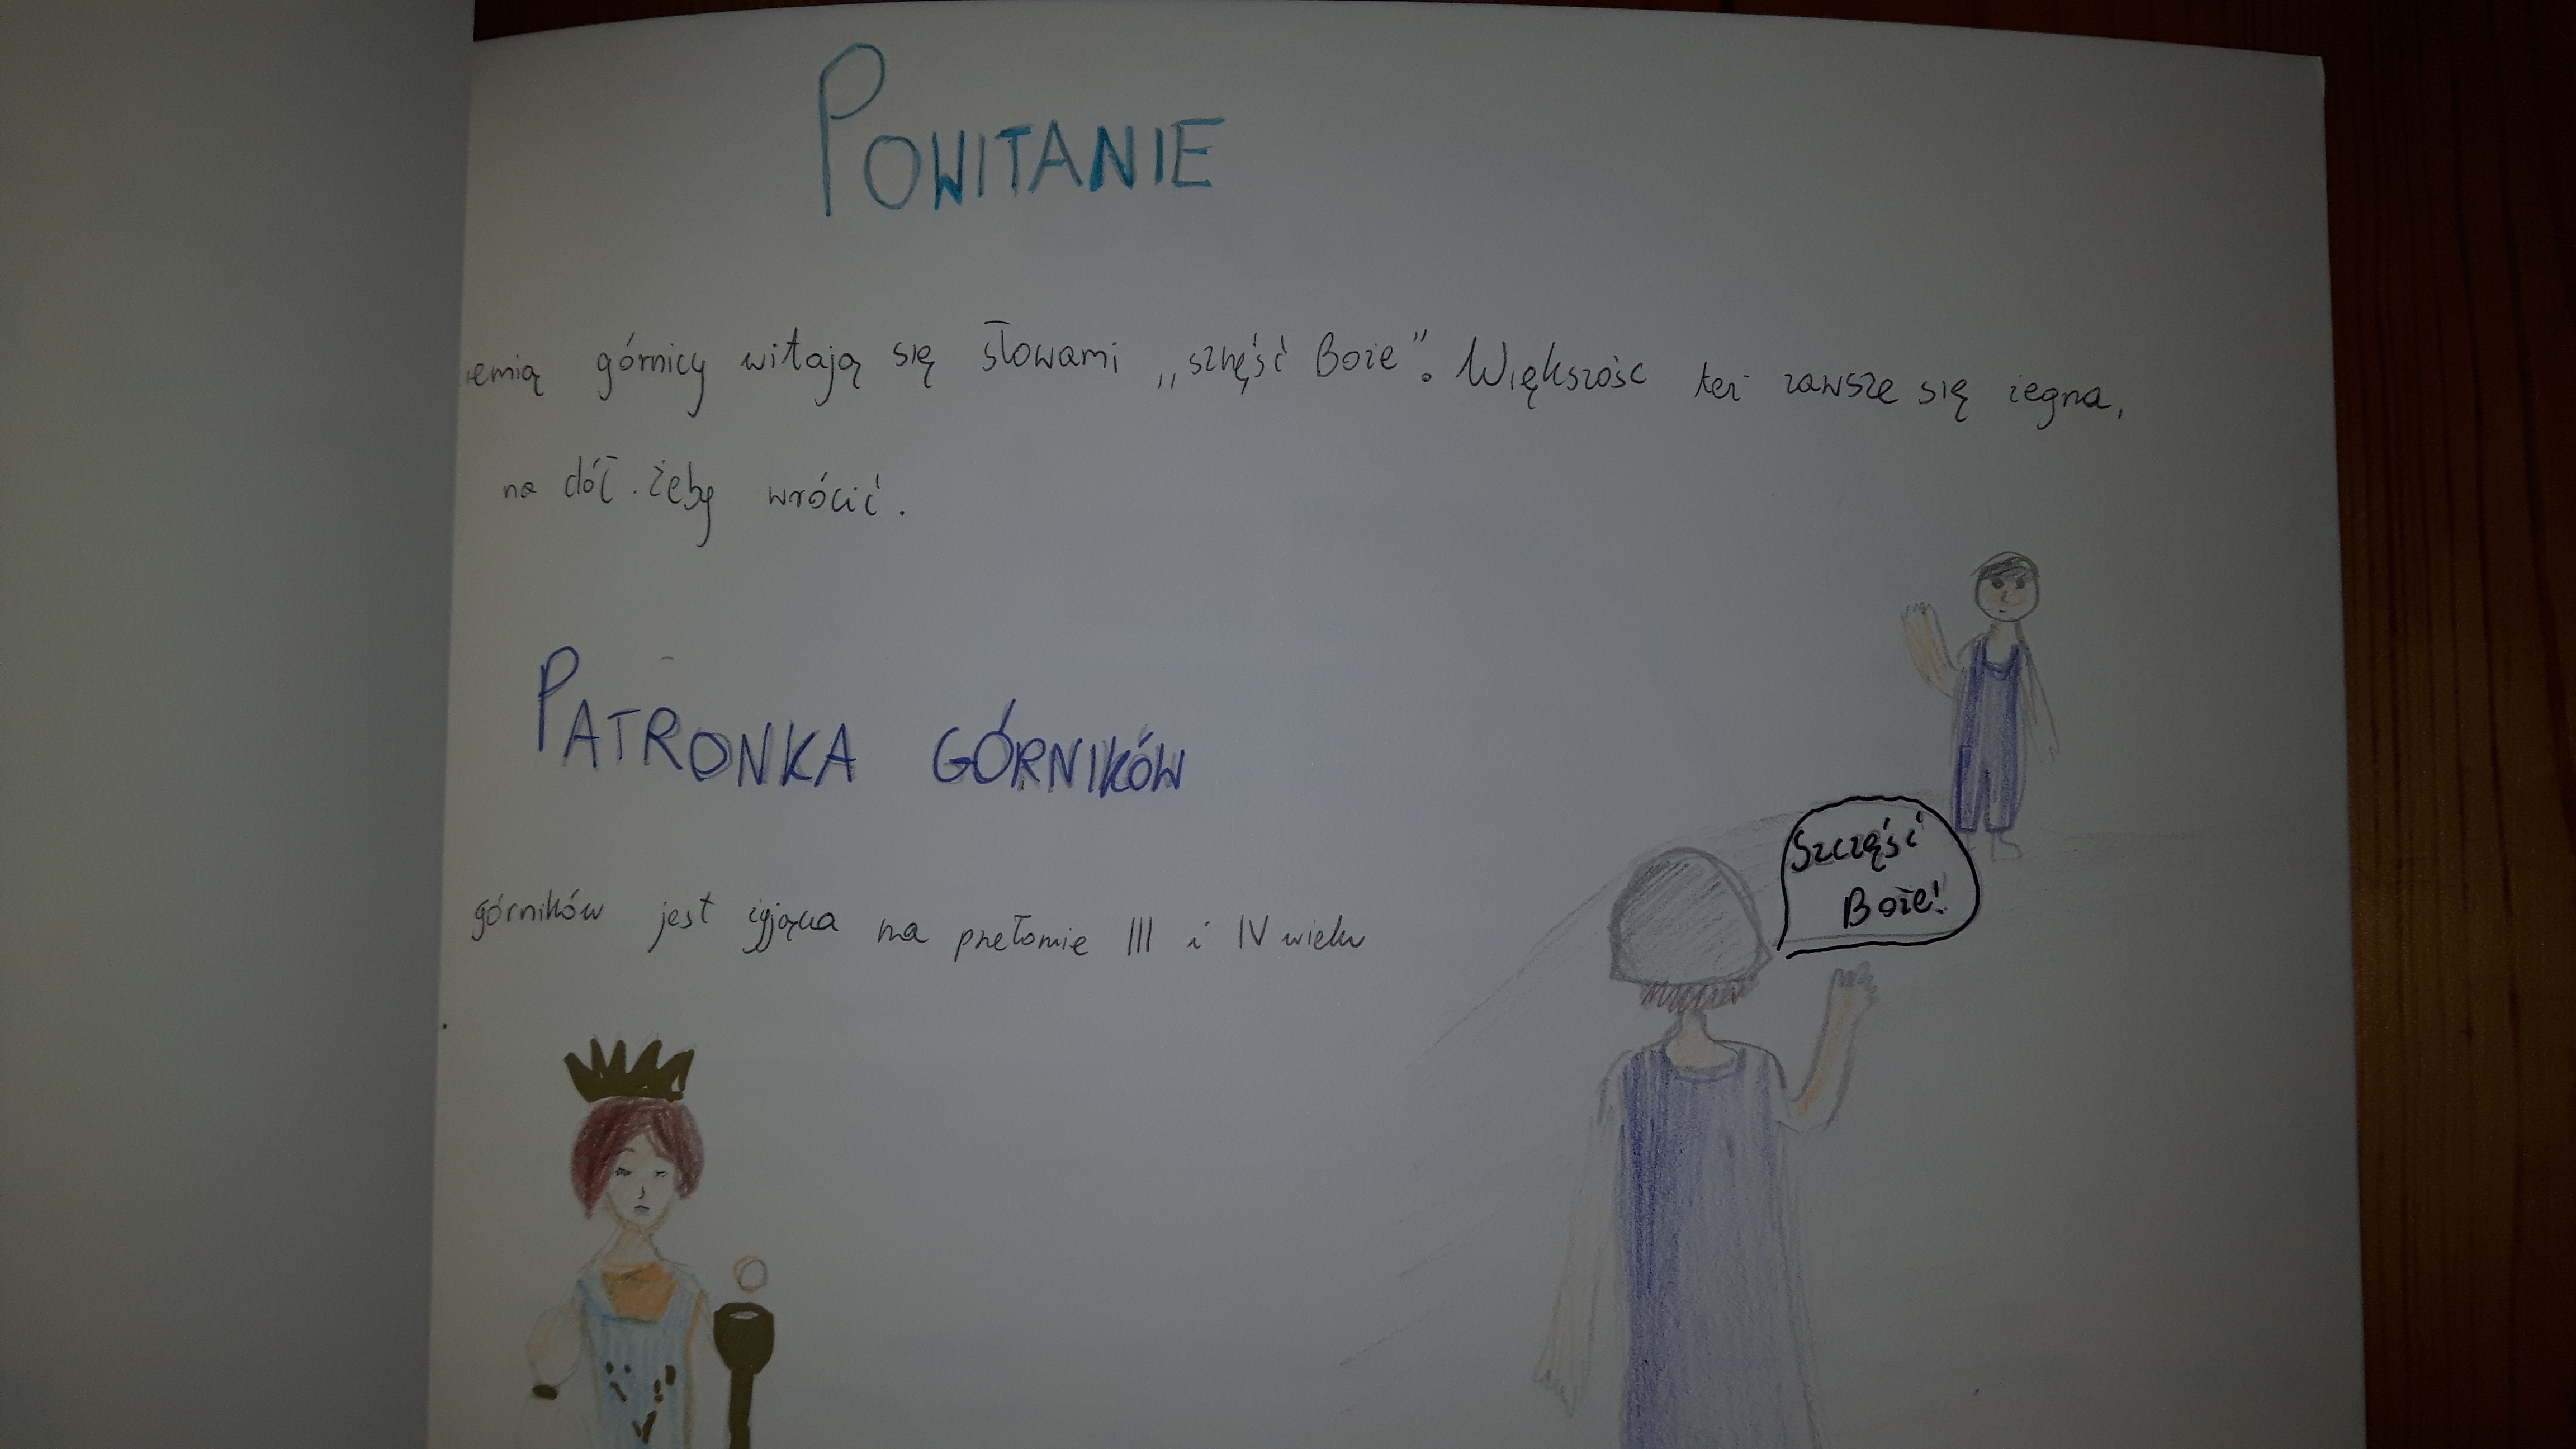 POWITANIE
iemią górnicy witają się słowami „szczęść Boże". Większość też zawsze się żegna,
na dół. żeby wrócić.
PATRONKA GÓRNIKÓW
górników jest żyjąca na przełomie III i IV wieku
Szczęść
Boże!